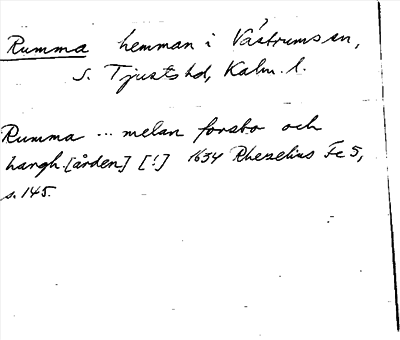 Rumma hemman i Västrums sn,
S. Tjusts hd, Kalm. l.
Rumma ... melan forsbo och
hargh [ården] [!] 1634 Rhezelius Fc 5,
s. 145.